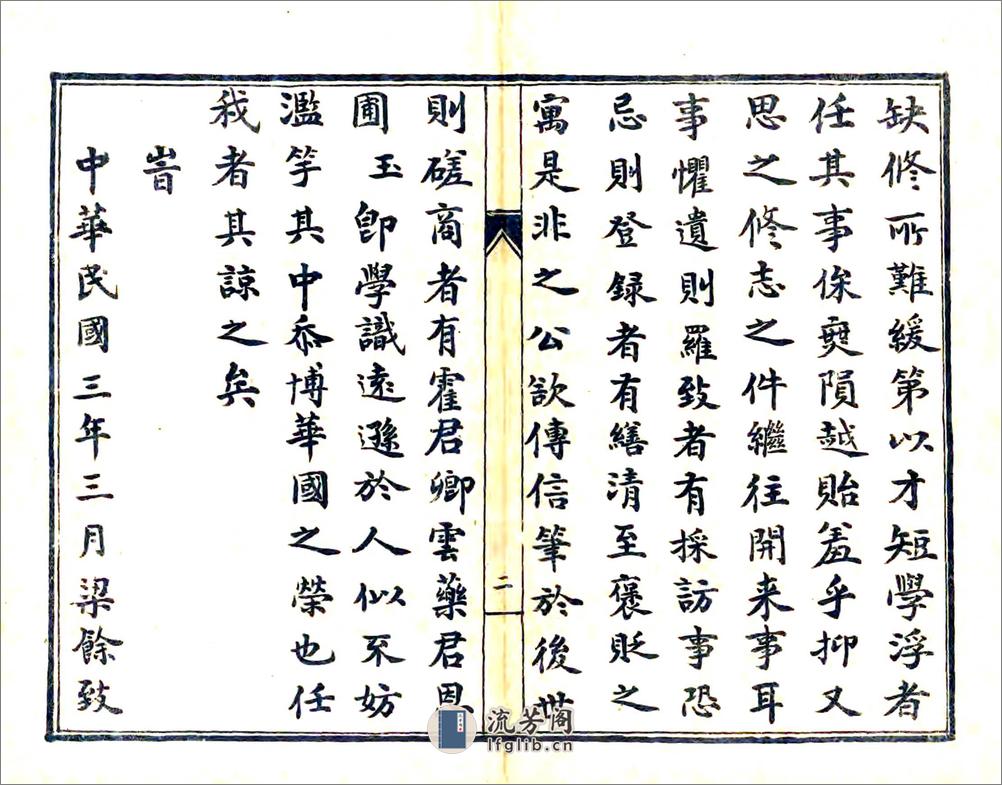 缺修所難緩第以才短學浮者
任其事俟䠶隕越貽羞乎抑又
思之修志之件繼往開来事耳
事懼遺則羅致者有採訪事恐
忌則登録者有繕清至褒貶之
寓是非之公欲傳信筆於後世
二
則磋商者有霍君卿雲藥君恩
圃玉卽學識遠遜於人似不妨
濫竽其中忝博華國之榮也任
我者其諒之矣
旹
中華民國三年三月梁餘致
流芳阁
lfglib.cn